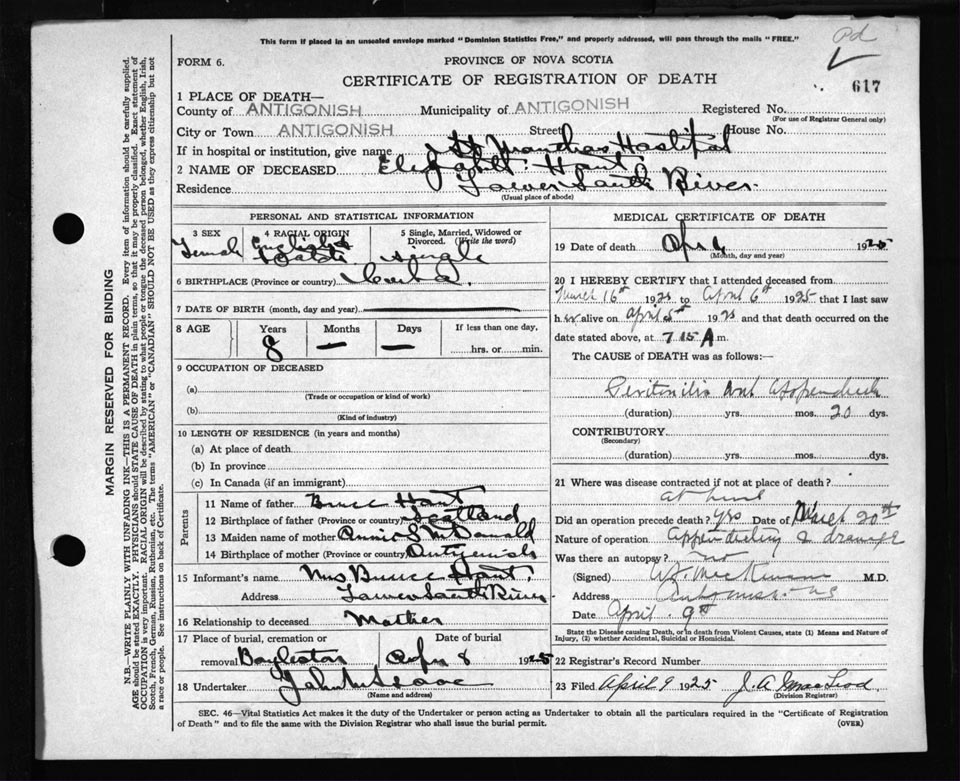 This form if placed in an unsealed envelope marked "Dominion Statistics Free," and properly addressed, will pass through the mails "FREE."
Pd
FORM 6.
PROVINCE OF NOVA SCOTIA
CERTIFICATE OF REGISTRATION OF DEATH
617
1 PLACE OF DEATH—
County of ANTIGONISH Municipality of ANTIGONISH Registered No.
(For use of Registrar General only)
City or Town ANTIGONISH Street House No.
If in hospital or institution, give name St Marthas Hospital
2 NAME OF DECEASED Elizabeth Hart
Residence Lower South River.
(Usual place of abode)
PERSONAL AND STATISTICAL INFORMATION
3 SEX 4 RACIAL ORIGIN 5 Single, Married, Widowed or Divorced. (Write the word)
Female English & single
6 BIRTHPLACE (Province or country)
7 DATE OF BIRTH (month, day and year)
8 AGE Years Months Days If less than one day,
8 — — hrs. or min.
9 OCCUPATION OF DECEASED
(a)
(Trade or occupation or kind of work)
(b)
(Kind of industry)
10 LENGTH OF RESIDENCE (in years and months)
(a) At place of death
(b) In province
(c) In Canada (if an immigrant)
Parents
11 Name of father Bruce Hart
12 Birthplace of father (Province or country) Scotland
13 Maiden name of mother Annie S McDonald
14 Birthplace of mother (Province or country) Antigonish
15 Informant's name Mrs Bruce Hart.
Address Lower South River
16 Relationship to deceased Mother
17 Place of burial, cremation or Date of burial
removal Baylston Apr 8 1925
18 Undertaker John
(Name and address)
MEDICAL CERTIFICATE OF DEATH
19 Date of death Apr 6 1925
(Month, day and year)
20 I HEREBY CERTIFY that I attended deceased from
March 16th 1925 to April 6th 1925 that I last saw
her alive on April 5th 1925 and that death occurred on
date stated above, at 7 15 A m.
The CAUSE OF DEATH was as follows:—
Peritonitis and Appendicitis
(duration) yrs. mos. 20 dys.
CONTRIBUTORY
(Secondary)
(duration) yrs. mos. dys.
21 Where was disease contracted if not at place of death?
At home
Did an operation precede death? yrs Date of March 20th
Nature of operation Appendectomy & drainage
Was there an autopsy? no
(Signed) M.D.
Address Antigonish NS
Date April 9th
State the Disease causing Death, or in death from Violent Causes, state (1) Means and Nature of Injury, (2) whether Accidental, Suicidal or Homicidal.
22 Registrar's Record Number
23 Filed April 9 1925 J. A. MacLeod
(Division Registrar)
SEC. 46—Vital Statistics Act makes it the duty of the Undertaker or person acting as Undertaker to obtain all the particulars required in the "Certificate of Registration
of Death" and to file the same with the Division Registrar who shall issue the burial permit.
(OVER)
MARGIN RESERVED FOR BINDING
N.B.—WRITE PLAINLY WITH UNFADING INK—THIS IS A PERMANENT RECORD. Every item of information should be carefully supplied.
AGE should be stated EXACTLY. PHYSICIANS should STATE CAUSE OF DEATH in plain terms, so that it may be properly classified. Exact statement of
OCCUPATION is very important. RACIAL ORIGIN will be described by stating to what people or tongue the deceased person belonged, whether English, Irish,
Scotch, French, German, Russian, Ruthenian, etc. The terms "AMERICAN" or "CANADIAN" SHOULD NOT BE USED as they express citizenship but not
a race or people. See instructions on back of Certificate.